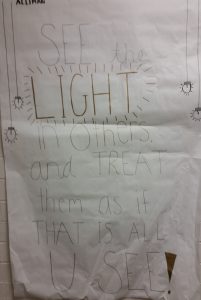 SEE the
LIGHT
in OTHERS.
and TREAT
them as if
THAT IS ALL
U SEE!